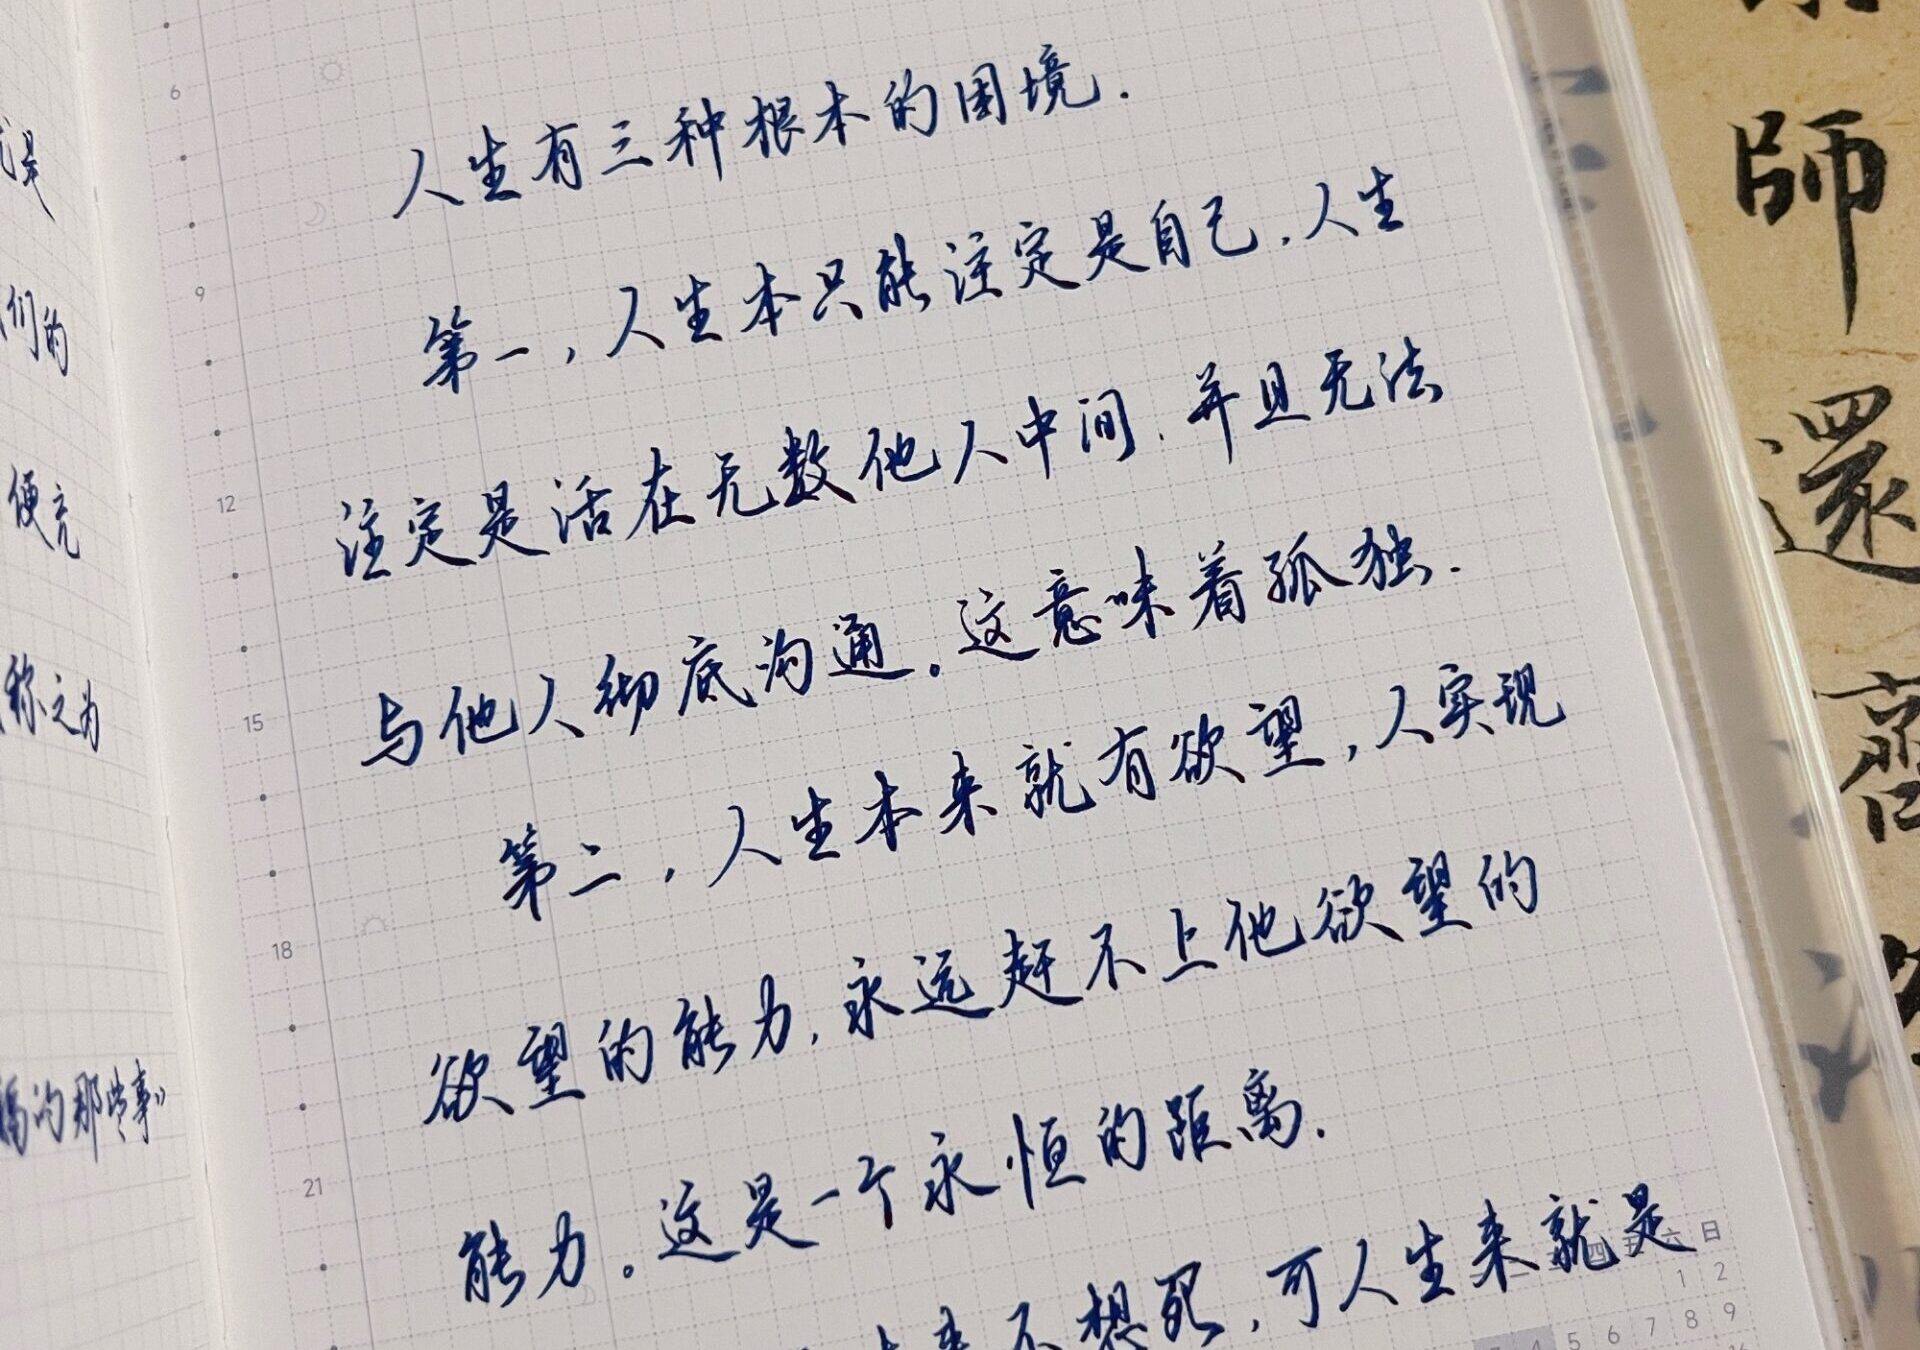 人生有三种根本的困境.
第一,人生本只能注定是自己.人生
注定是活在无数他人中间.并且无法
与他人彻底沟通。这意味着孤独.
第二,人生本来就有欲望,人实现
欲望的能力,永远赶不上他欲望的
能力。这是一个永恒的距离.
来不想死,可人生来就是
是
们的
便充
称之为
的那些事》
師
還
齋
6
9
12
15
18
21
四 五 六 日
1 2
5 6 7 8 9